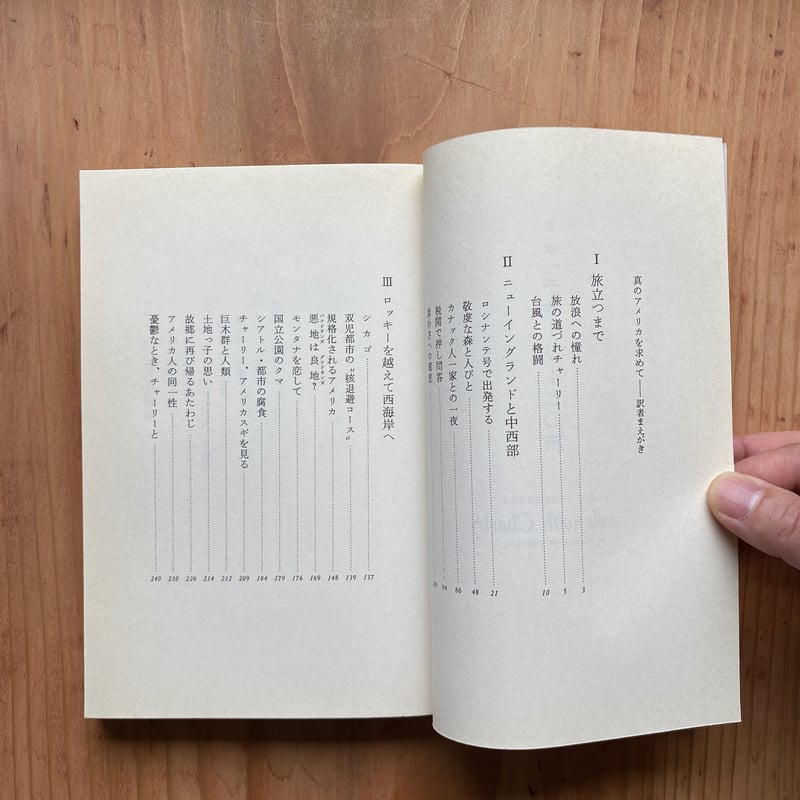 真のアメリカを求めて──訳者まえがき
Ⅰ 旅立つまで
放浪への憧れ……3
旅の道づれチャーリー……5
台風との格闘……10
Ⅱ ニューイングランドと中西部
ロシナンテ号で出発する……21
敬虔な森と人びと……48
カナック人一家との一夜……66
税関で押し問答……94
Ⅲ ロッキーを越えて西海岸へ
シカゴ……137
双児都市の〝核退避コース〟……139
規格化されるアメリカ……148
バッドランズ グッドランズ
悪地は良地?……169
モンタナを恋して……176
国立公園のクマ……179
シアトル・都市の腐食……184
チャーリー、アメリカスギを見る……209
巨木群と人類……212
土地っ子の思い……214
故郷に再び帰るあたわじ……226
アメリカ人の同一性……230
憂鬱なとき、チャーリーと……240